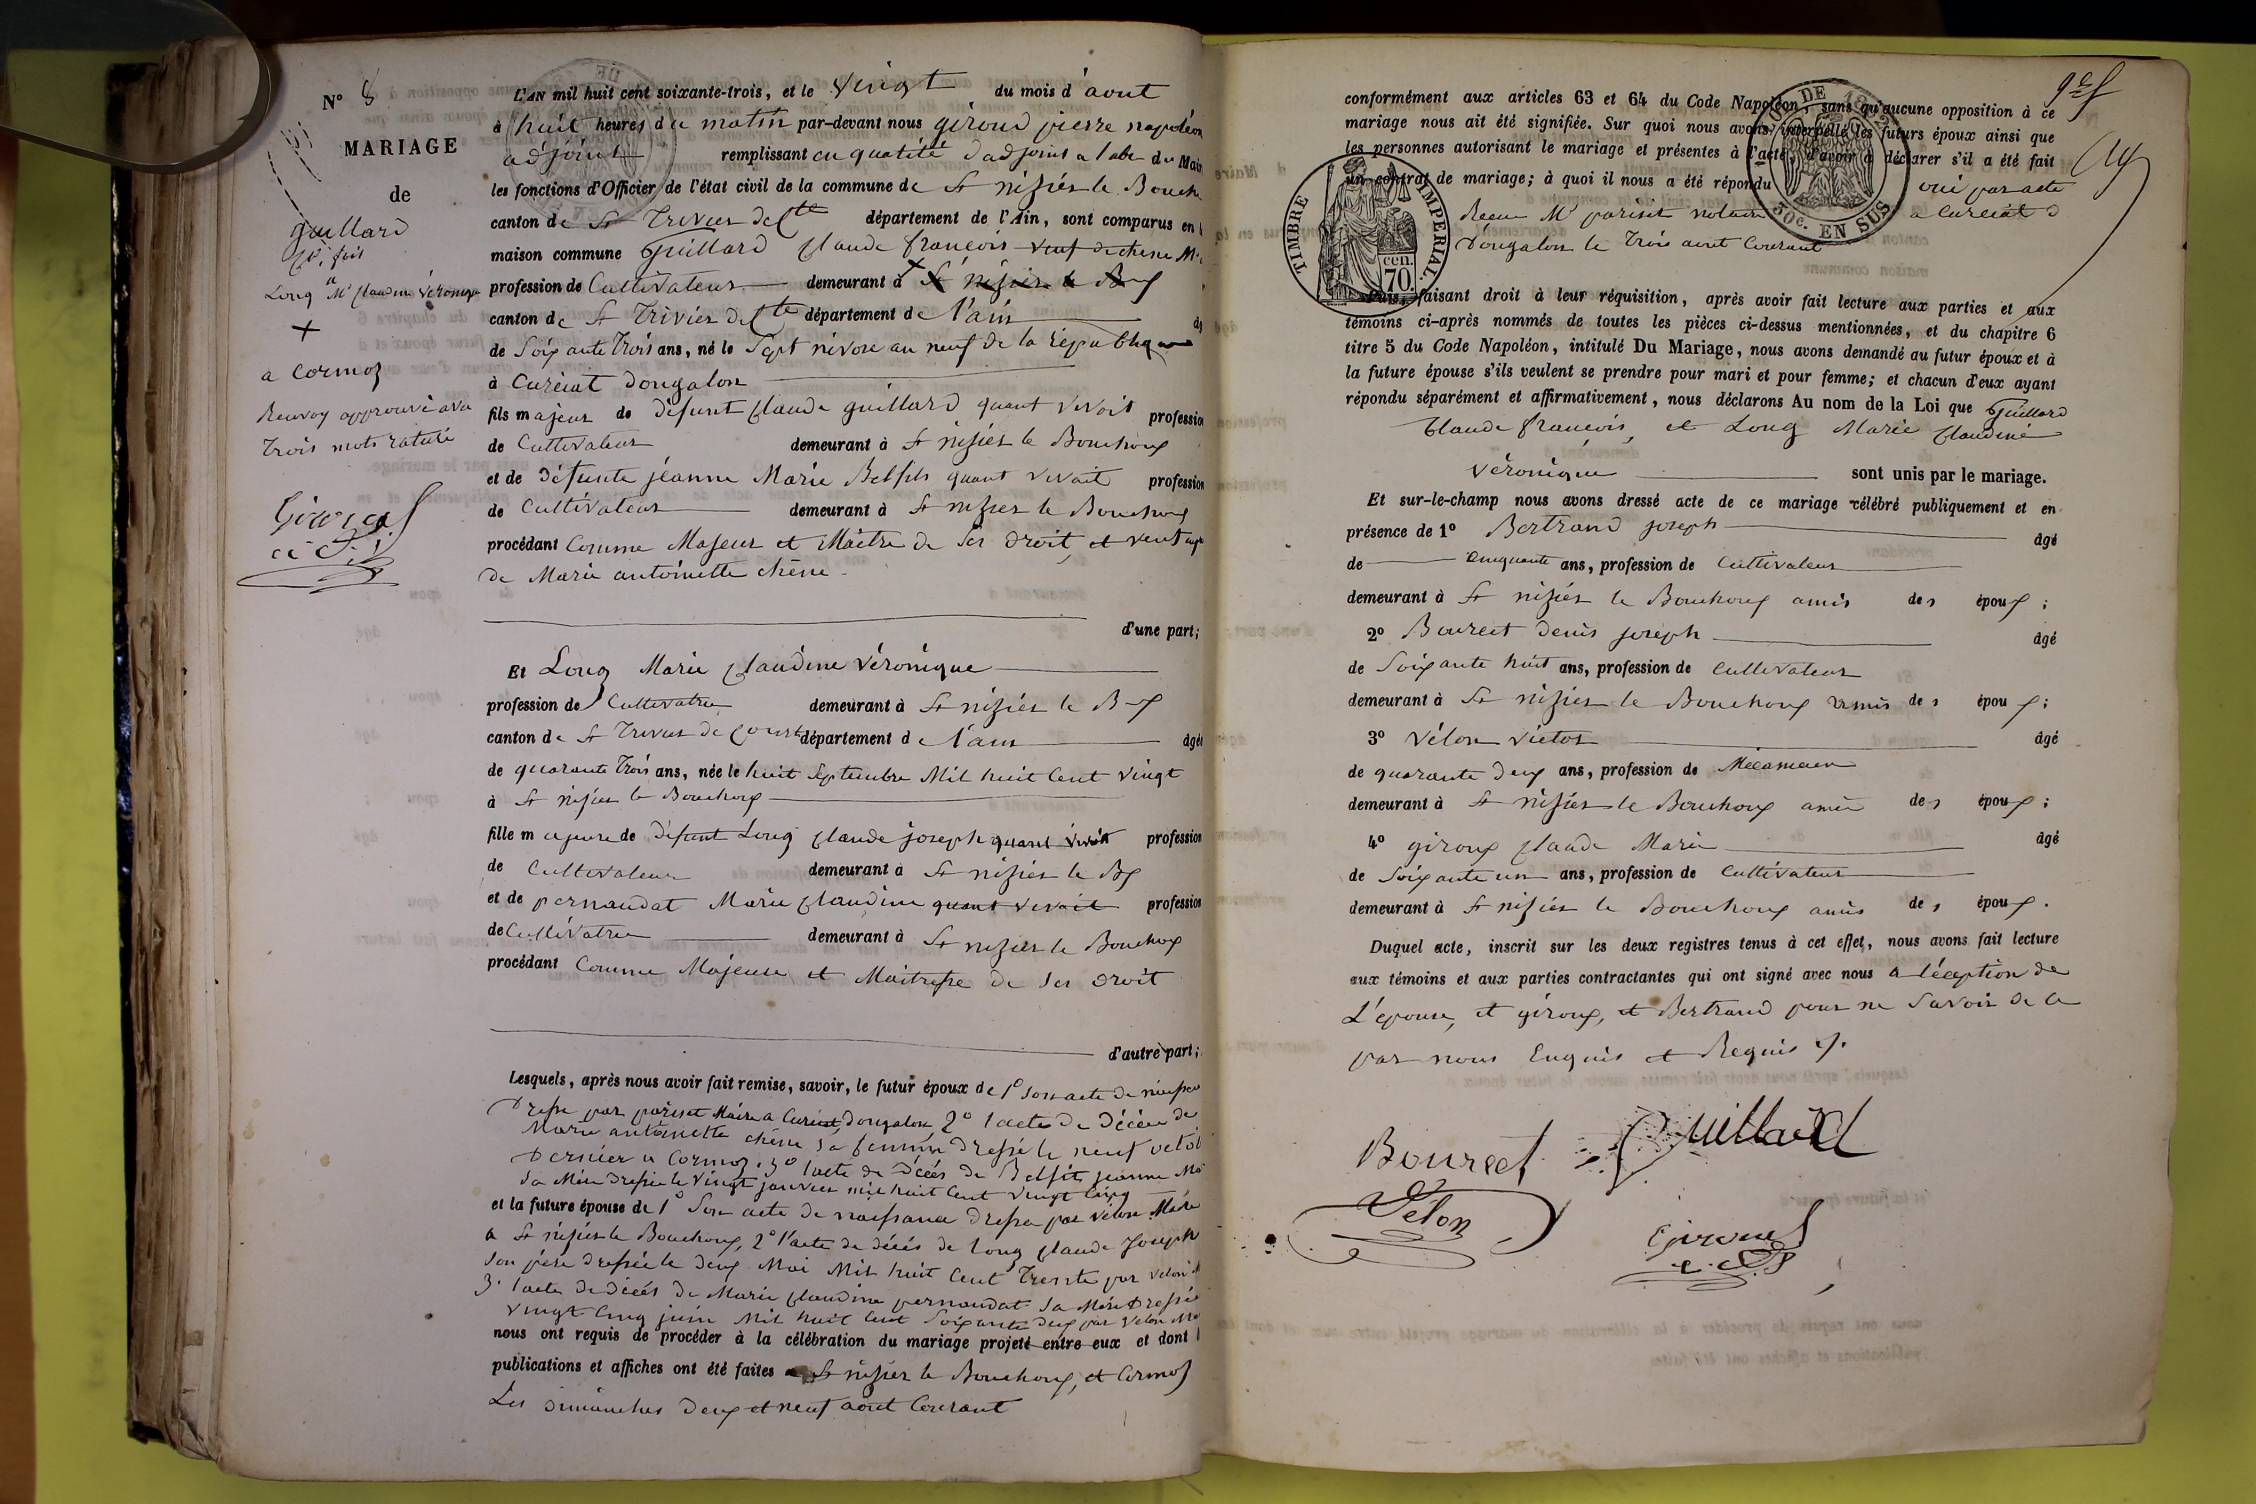 N° 8
MARIAGE
de
guillard
Cde fois
et
Long Me Claudine Véronique
+
a Cormoz
Renvoy approuvé avec
trois mots raturé
Giroud
L'AN mil huit cent soixante-trois, et le vingt du mois d'aout
à huit heures du matin par-devant nous giroud pierre napoléon
adjoint remplissant en qualité d'adjoint a l'abs du Mair
les fonctions d'Officier de l'état civil de la commune de St nizier le Bouch
canton de St Trivier de Cte département de l'Ain, sont comparus en l
maison commune Guillard Claude françois veuf de chene Me
profession de Cultivateur demeurant à + St nizier le Bx
canton de St Trivier de Cte département de l'ain âg
de Soixante trois ans, né le Sept nivose an neuf de la république
à Curciat dongalon
fils majeur de défunt Claude guillard quant vivoit profession
de Cultivateur demeurant à St nizier le Bouchoux
et de défunte jeanne Marie Belfils quant vivait profession
de Cultivateur demeurant à St nizier le Bouchoux
procédant Comme Majeur et Maitre de Ses droit, et veuf
de Marie antoinette chêne
d'une part;
Et Long Marie Claudine Véronique
profession de Cultivatrice demeurant à St nizier le Bx
canton de St Trivier de Courte département de l'ain âgée
de quarante trois ans, née le huit Septembre Mil huit Cent vingt
à St nizier le Bouchoux
fille majeure de défunt Long Claude joseph quant vivoit profession
de Cultivateur demeurant à St nizier le Bx
et de pernaudat Marie Claudine quant vivait profession
de Cultivatrice demeurant à St nizier le Bouchoux
procédant Comme Majeure et Maitresse de Ses droit
d'autre part;
Lesquels, après nous avoir fait remise, savoir, le futur époux de 1° Son acte de naissance
dressé par pariset Maire a Curciat dongalon, 2° l'acte de décès de
Marie antoinette chêne Sa femme dressé le neuf octob
dernier a Cormoz. 3° l'acte de décés de Belfils jeanne Ma
Sa Mère dressé le vingt janvier mil huit Cent vingt Cinq
et la future épouse de 1° Son acte de naissance dressé par velon Maire
a St nizier le Bouchoux, 2° l'acte de décés de Long Claude Joseph
Son père dressé le deux Mai Mil huit Cent Trente par velon M
3° l'acte de décés de Marie Claudine pernaudat Sa Mère dressé
vingt Cinq juin Mil huit Cent Soixante deux par Velon Ma
nous ont requis de procéder à la célébration du mariage projeté entre eux et dont l
publications et affiches ont été faites a St nizier le Bouchoux, et Cormoz
Les dimanches deux et neuf aout Courant
conformément aux articles 63 et 64 du Code Napoléon, sans qu'aucune opposition à ce
mariage nous ait été signifiée. Sur quoi nous avons interpellé les futurs époux ainsi que
les personnes autorisant le mariage et présentes à l'acte, d'avoir à déclarer s'il a été fait
un contrat de mariage; à quoi il nous a été répondu oui par acte
Recu Me pariset notaire a Curciat d
Dongalon le trois aout Courant
DE 1862
50c. EN SUS
TIMBRE IMPERIAL.
70. cen.
Puis, faisant droit à leur réquisition, après avoir fait lecture aux parties et aux
témoins ci-après nommés de toutes les pièces ci-dessus mentionnées, et du chapitre 6
titre 5 du Code Napoléon, intitulé Du Mariage, nous avons demandé au futur époux et à
la future épouse s'ils veulent se prendre pour mari et pour femme; et chacun d'eux ayant
répondu séparément et affirmativement, nous déclarons Au nom de la Loi que Guillard
Claude françois, et Long Marie Claudine
Véronique sont unis par le mariage.
Et sur-le-champ nous avons dressé acte de ce mariage célébré publiquement et en
présence de 1° Bertrand joseph âgé
de Cinquante ans, profession de Cultivateur
demeurant à St nizier le Bouchoux amis des époux;
2° Bourcet denis joseph âgé
de Soixante huit ans, profession de Cultivateur
demeurant à St nizier le Bouchoux amis des époux;
3° Vélon victor âgé
de quarante deux ans, profession de Mécanicien
demeurant à St nizier le Bouchoux amis des époux;
4° giroux Claude Marie âgé
de Soixante un ans, profession de Cultivateur
demeurant à St nizier le Bouchoux amis des époux.
Duquel acte, inscrit sur les deux registres tenus à cet effet, nous avons fait lecture
aux témoins et aux parties contractantes qui ont signé avec nous a l'éception de
L'epouse, et giroux, et Bertrand pour ne Savoir de ce
par nous Enquis et Requis
Bourcet Guillard
Vélon Giroud